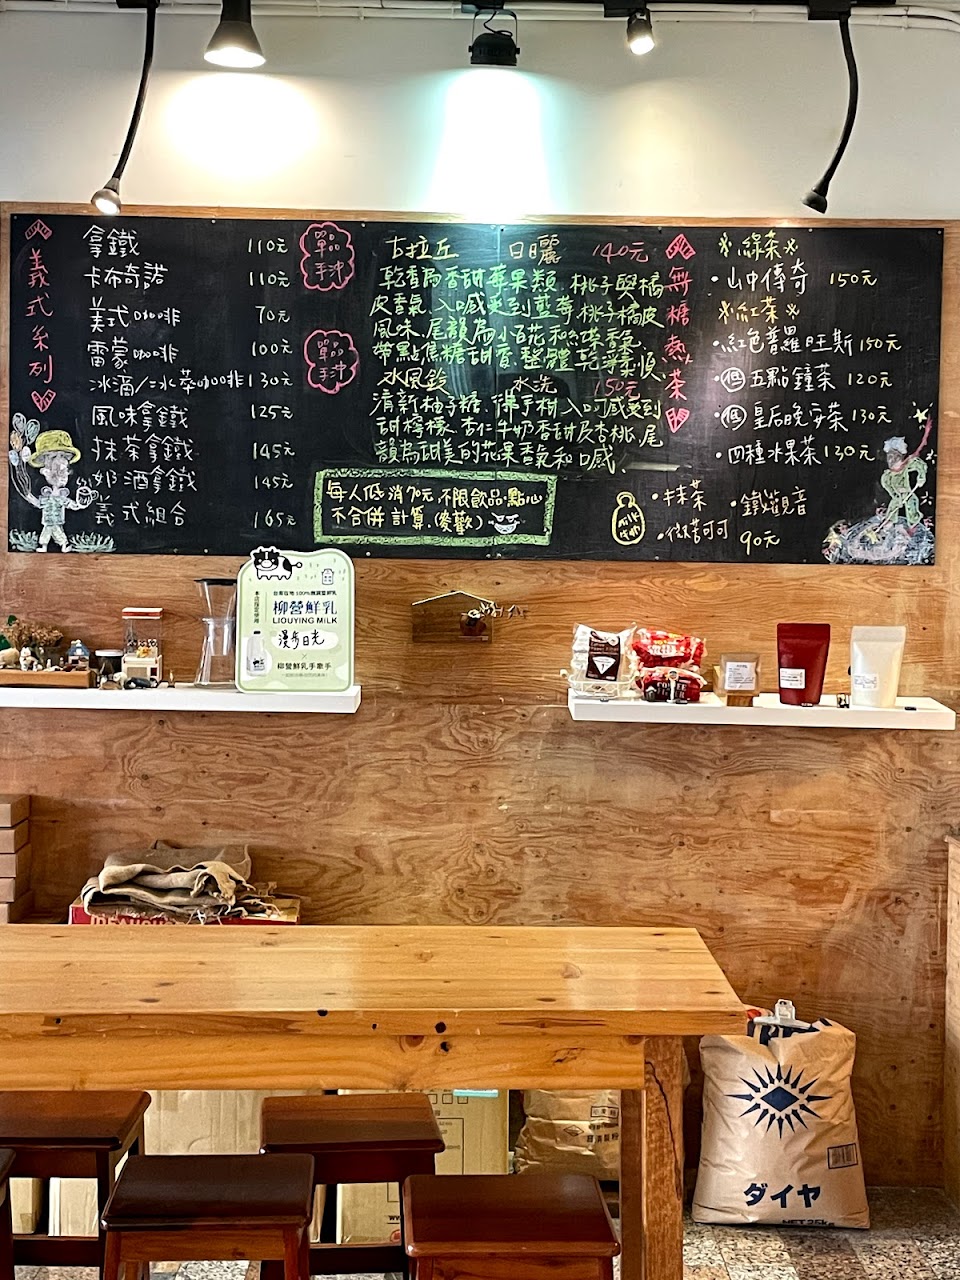 義式系列
拿鐵 110元
卡布奇諾 110元
美式咖啡 70元
雷蒙咖啡 100元
冰滴/冰萃咖啡 130元
風味拿鐵 125元
抹茶拿鐵 145元
奶酒拿鐵 145元
義式組合 165元
單品
手沖
古拉丘 日曬 140元
乾香為香甜莓果類、桃子與橘
皮香氣、入口感受到藍莓、桃子橘皮
風味、尾韻為小百花和
帶點焦糖甜香、整體乾淨柔順、
單品
手沖
水風鈴 水洗 150元
清新柚子糖、佛手柑、入口感受到
甜檸檬、杏仁牛奶香甜及杏桃、尾
韻為甜美的花果香氣和口感、
每人低消70元、不限飲品、點心
不合併計算、
無糖熱茶
綠茶
・山中傳奇 150元
紅茶
・紅色普羅旺斯 150元
・五點鐘茶 120元
・皇后晚安茶 130元
・四種水果茶 130元
MilK
・抹茶 ・鐵觀音
・微苦可可 90元
本店指定使用
台灣在地100%
柳營鮮乳
LIOUYING MILK
漫步日光
×
柳營鮮乳手牽手
COFFEE
ダイヤ
NET 25kg